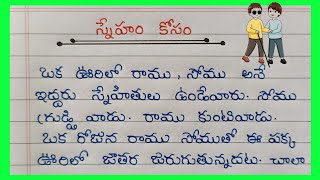 స్నేహం కోసం
ఒక ఊరిలో రాము, సోము అనే
ఇద్దరు స్నేహితులు ఉండేవారు. సోము
గ్రుడ్డి వాడు. రాము కుంటివాడు.
ఒక రోజున రాము సోముతో ఈ పక్క
ఊరిలో జాతర జరుగుతున్నదట. చాలా